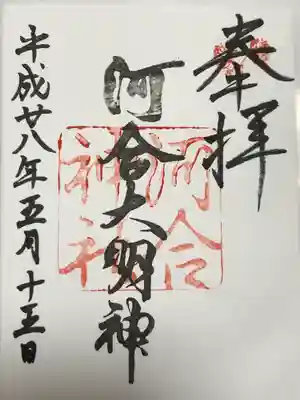 奉拝
河合大明神
河合
神社
平成廿八年五月十日